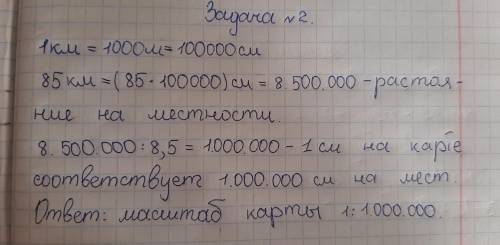 Задача №2.
1км = 1000м = 100000см
85км = (85 · 100000)см = 8.500.000 - растоя-
ние на местности.
8.500.000 : 8,5 = 1.000.000 - 1см на карте
соответствует 1.000.000 см на мест.
Ответ: масштаб карты 1:1.000.000.